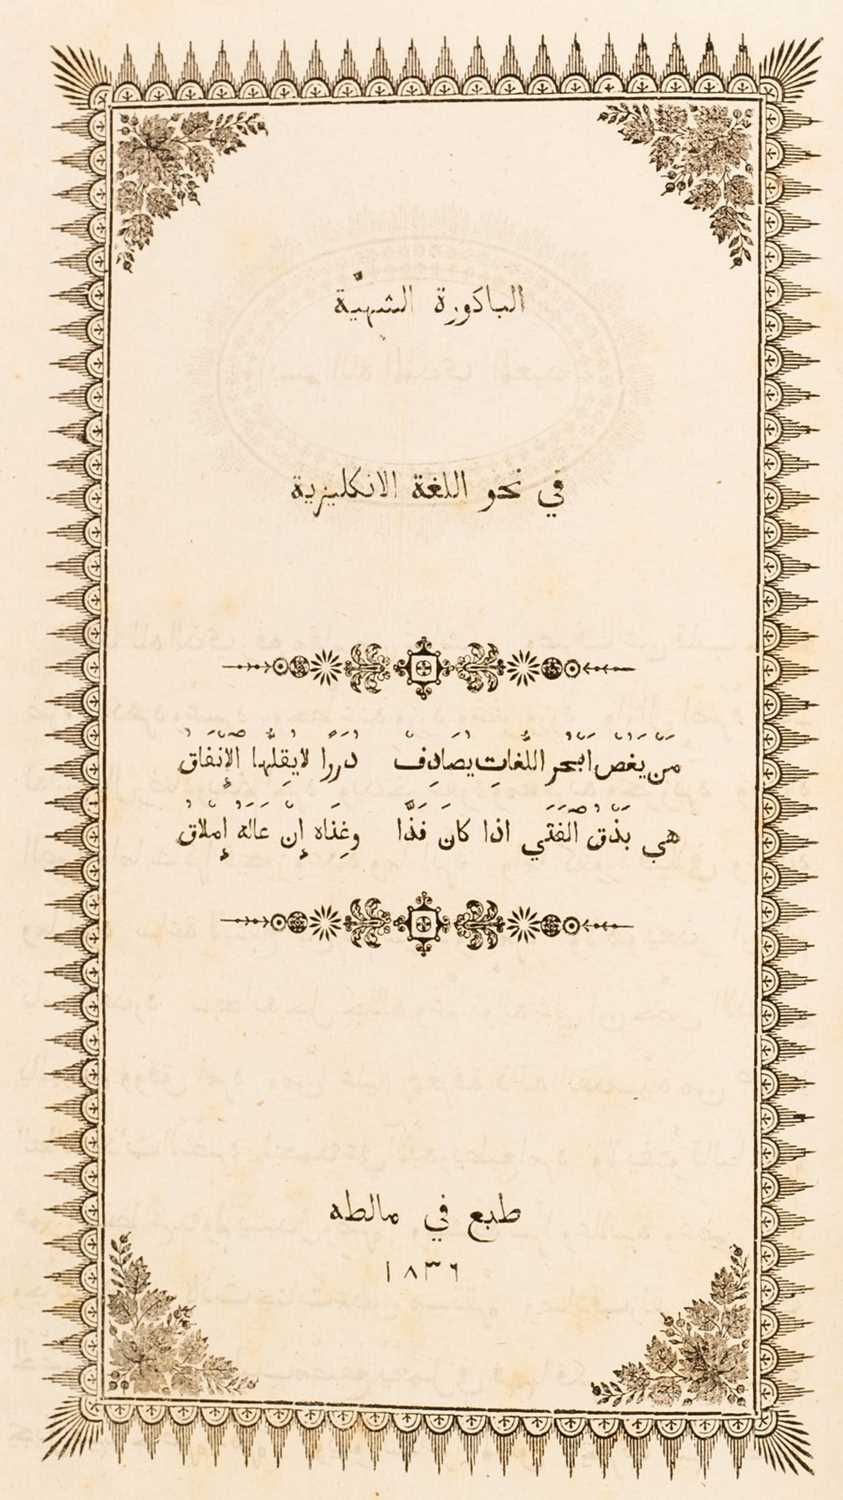 الباكورة الشهيّة
في نحو اللغة الانكليزية
مَنْ يَغُصْ ابْحُر اللُّغَاتِ يُصَادِفْ دُرَرًا لا يُقِلُّهَا الإنْفَاقُ
هي بذْق الفتي اذا كانَ فَذًّا وغِنَاه إنْ عَالَهُ إِمْلاقُ
طبع في مالطه
١٨٣٦